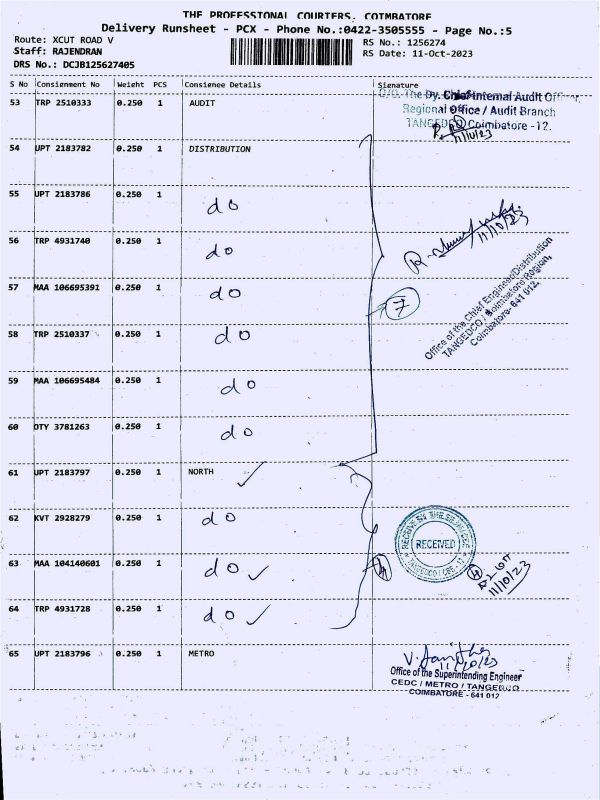 THE PROFESSIONAL COURIERS, COIMBATORE
Delivery Runsheet - PCX - Phone No.:0422-3505555 - Page No.:5
Route: XCUT ROAD V
RS No.: 1256274
Staff: RAJENDRAN
RS Date: 11-Oct-2023
DRS No.: DCJB125627405
S No Consignment No Weight PCS Consignee Details Signature
53 TRP 2510333 0.250 1 AUDIT
O/O. The Dy. Chief Internal Audit Officer,
Regional Office / Audit Branch
TANGEDCO Coimbatore - 12.
11/10/23
54 UPT 2183782 0.250 1 DISTRIBUTION
55 UPT 2183786 0.250 1 do
56 TRP 4931740 0.250 1 do
11/10/23
57 MAA 106695391 0.250 1 do
7
Office of the Chief Engineer/Distribution
TANGEDCO / Coimbatore Region,
Coimbatore- 641 012.
58 TRP 2510337 0.250 1 do
59 MAA 106695484 0.250 1 do
60 OTY 3781263 0.250 1 do
61 UPT 2183797 0.250 1 NORTH
62 KVT 2928279 0.250 1 do
RECEIVED
63 MAA 104140601 0.250 1 do
4
11/10/23
64 TRP 4931728 0.250 1 do
65 UPT 2183796 0.250 1 METRO
11/10/23
Office of the Superintending Engineer
CEDC / METRO / TANGEDCO
COIMBATORE - 641 012